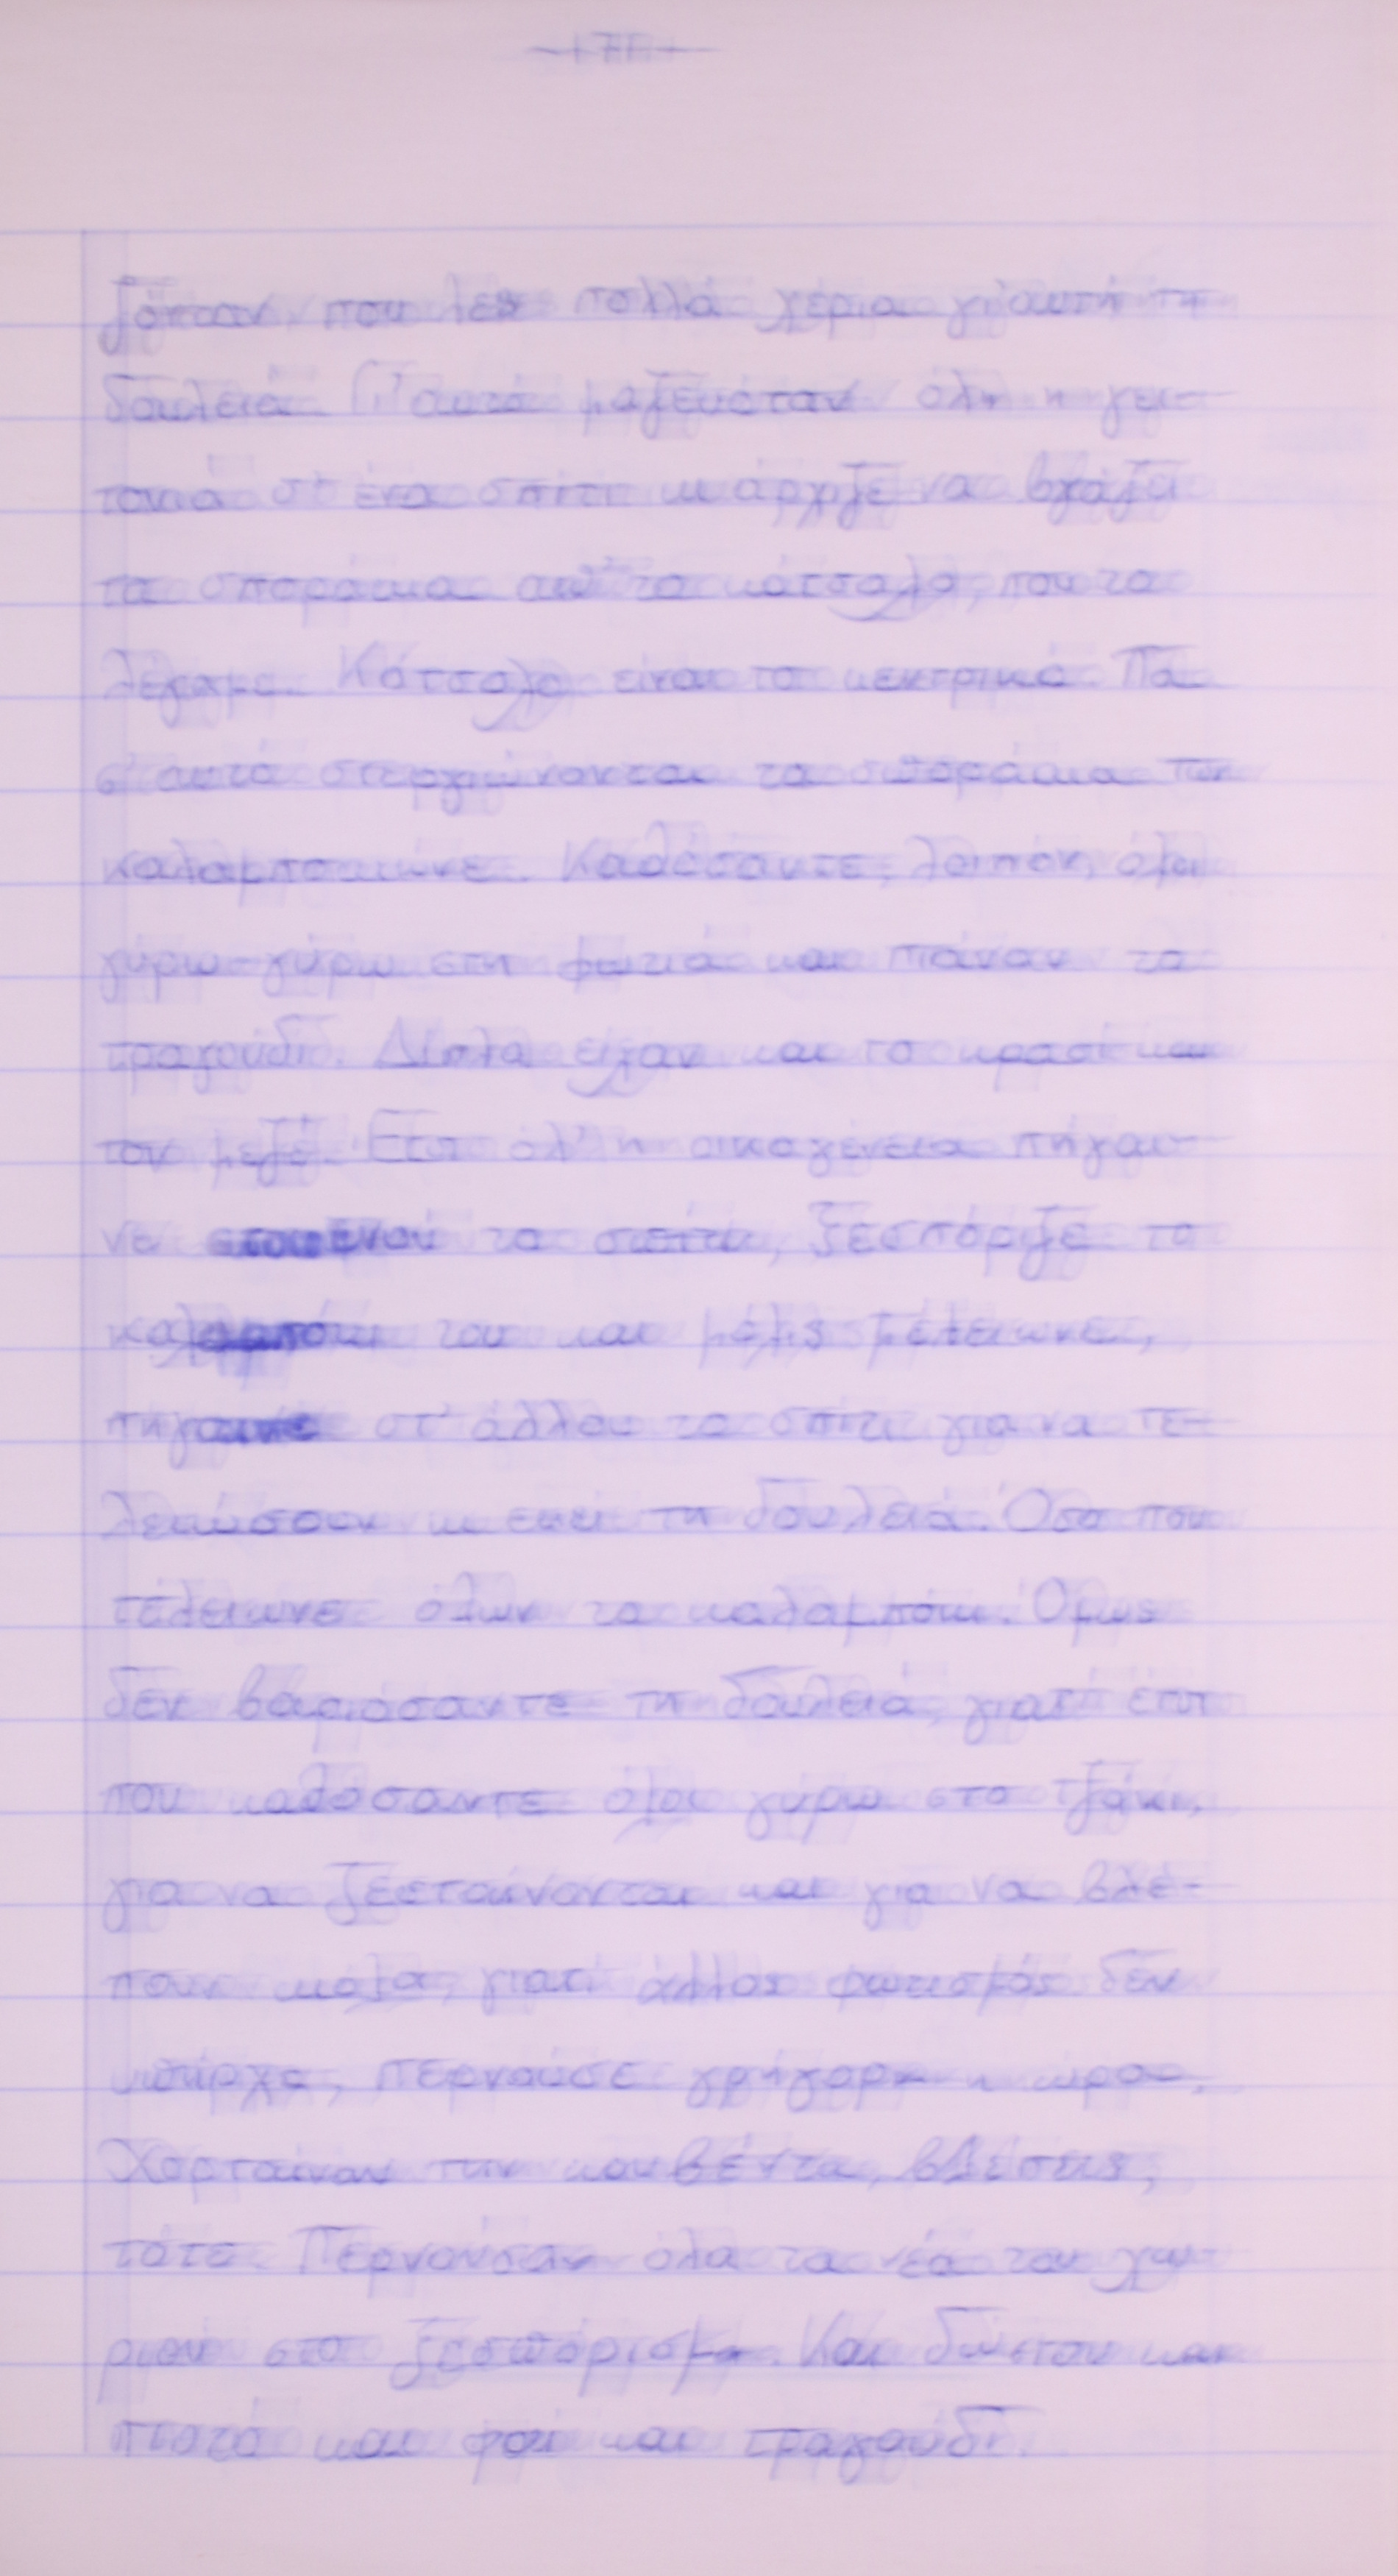 ζόταν, που λες πολλά χέρια γι' αυτή τη
δουλειά. Γι' αυτό μαζευόταν όλη η γει-
τονιά σ' ένα σπίτι κι άρχιζε να βγάζει
τα σποράκια απ' το κότσαλο, που το
λέγαμε. Κότσαλο είναι το κεντρικό. Πά
σ' αυτό στεργιώνονται τα σποράκια των
καλαμποκιώνε. Καθόσαντε, λοιπόν, όλοι
γύρω-γύρω στη φωτιά και πιάναν το
τραγούδι. Δίπλα είχαν και το κρασί και
τον μεζέ. Έτσι όλ' η οικογένεια πήγαι-
νε στουενού το σπίτι, ξεσπόριζε το
καλαμπόκι του και μόλις τέλειωνε,
πήγαινε στ' άλλου το σπίτι για να τε-
λειώσουν κι εκεί τη δουλειά. Όσο που
τέλειωνε όλων το καλαμπόκι. Όμως
δεν βαριόσαντε τη δουλειά, γιατί έτσι
που καθόσαντε όλοι γύρω στο τζάκι,
για να ζεσταίνονται και για να βλέ-
πουν κιόλα, γιατί άλλος φωτισμός δεν
υπήρχε, περνούσε γρήγορα η ώρα.
Χορταίναν την κουβέντα, βλέπεις,
τότε. Περνούσαν όλα τα νέα του χω-
ριού στο ξεσπόρισμα. Και δώστου και
πιοτό και φαί και τραγούδι.